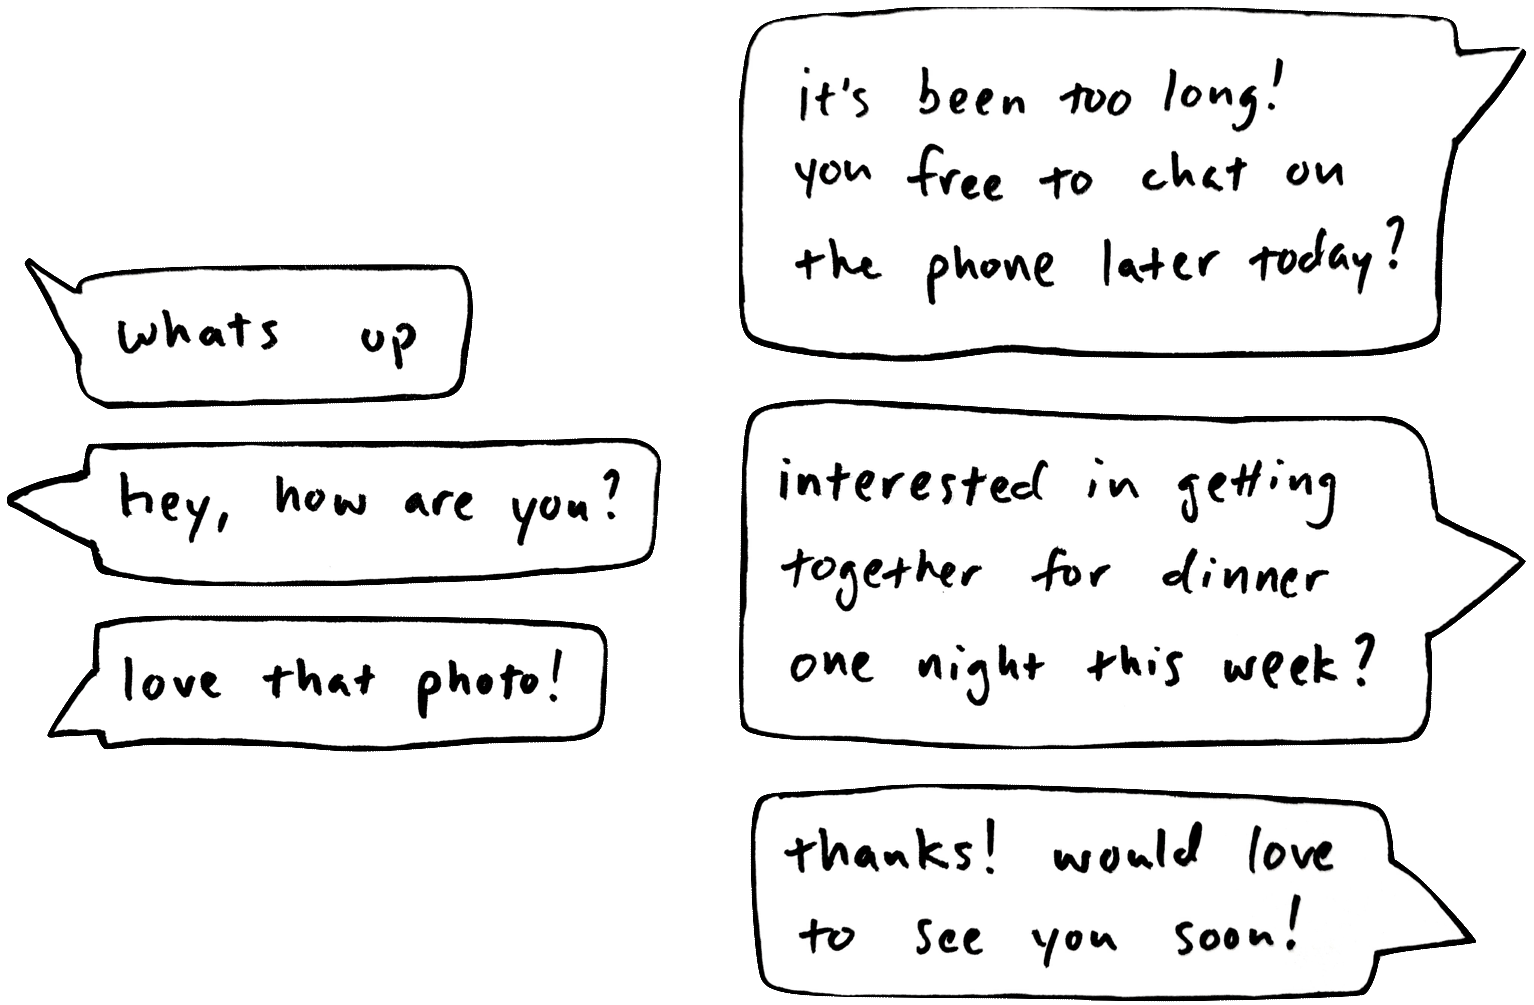 whats up
hey, how are you?
love that photo!
it's been too long!
you free to chat on
the phone later today?
interested in getting
together for dinner
one night this week?
thanks! would love
to see you soon!